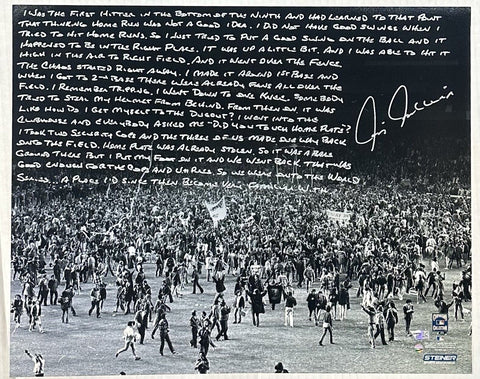 I WAS THE FIRST HITTER IN THE BOTTOM OF THE NINTH AND HAD LEARNED TO THAT POINT
THAT THINKING HOME RUN WAS NOT A GOOD IDEA. I DID NOT HAVE GOOD SWINGS WHEN I
TRIED TO HIT HOME RUNS. SO I JUST TRIED TO PUT A GOOD SWING ON THE BALL AND IT
HAPPENED TO BE IN THE RIGHT PLACE. IT WAS UP A LITTLE BIT. AND I WAS ABLE TO HIT IT
HIGH IN THE AIR TO RIGHT FIELD. AND IT WENT OVER THE FENCE.
THE CHAOS STARTED RIGHT AWAY. I MADE IT AROUND 1ST BASE AND
WHEN I GOT TO 2ND BASE THERE WERE ALREADY FANS ALL OVER THE
FIELD. I REMEMBER TRIPPING. I WENT DOWN TO ONE KNEE. SOMEBODY
TRIED TO STEAL MY HELMET FROM BEHIND. FROM THEN ON IT WAS
LIKE HOW DO I GET MYSELF TO THE DUGOUT? I WENT INTO THE
CLUBHOUSE AND EVERYBODY ASKED ME "DID YOU TOUCH HOME PLATE?"
I TOOK TWO SECURITY COPS AND THE THREE OF US MADE OUR WAY BACK
ONTO THE FIELD. HOME PLATE WAS ALREADY STOLEN. SO IT WAS A BARE
GROUND THERE BUT I PUT MY FOOT ON IT AND WE WENT BACK. THAT WAS
GOOD ENOUGH FOR THE COPS AND UMPIRES. SO WE WERE ONTO THE WORLD
SERIES... A PLACE I'D SINCE THEN BECOME VERY
STEINER